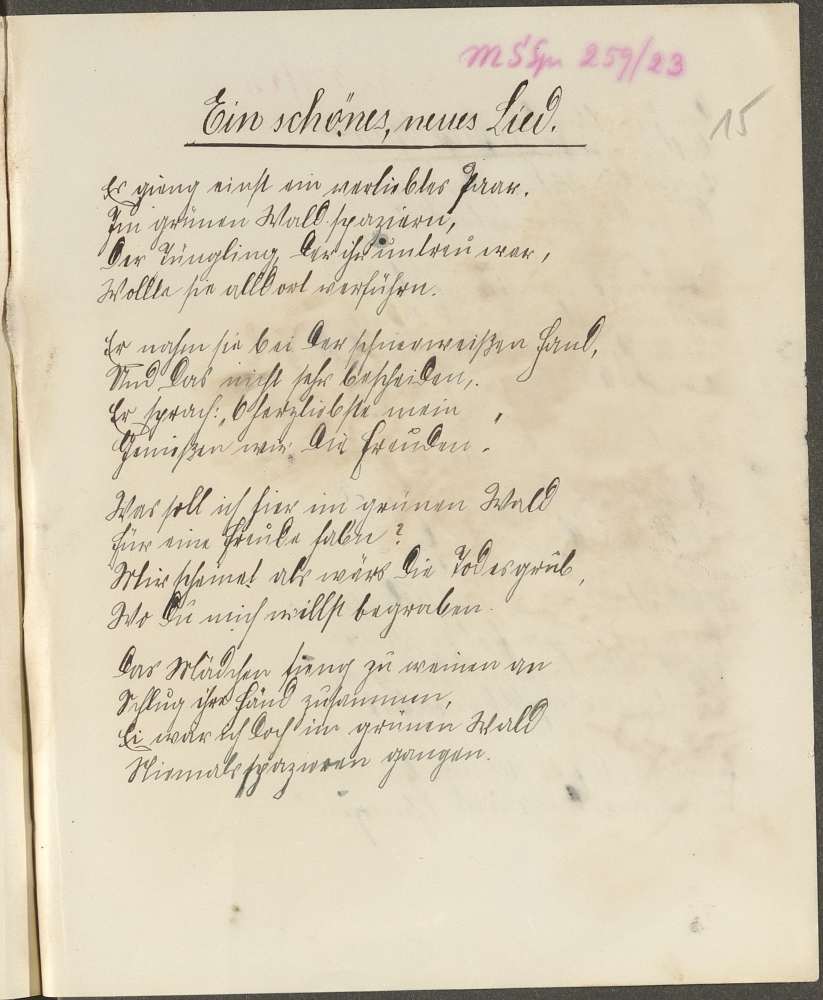 MŚSpr 259/23
15
Ein schönes, neues Lied.
Es gieng einst ein verliebtes Paar.
Im grünen Wald spazieren,
Der Jüngling, der ihr untreu war,
Wollte sie alldort verführn.
Er nahm sie bei der schneeweißen Hand,
Und das nicht sehr bescheiden,
Er sprach: „O herzliebste mein
Genießen wir die Freuden."
Was soll ich hier im grünen Wald
Für eine Freude habn?
Mir scheinet als wärs die Todesgrub,
Wo du mich willst begraben.
Das Mädchen fieng zu weinen an
Schlug ihre Händ zusammen,
Ei war ich doch im grünen Wald
Niemals spazieren gangen.